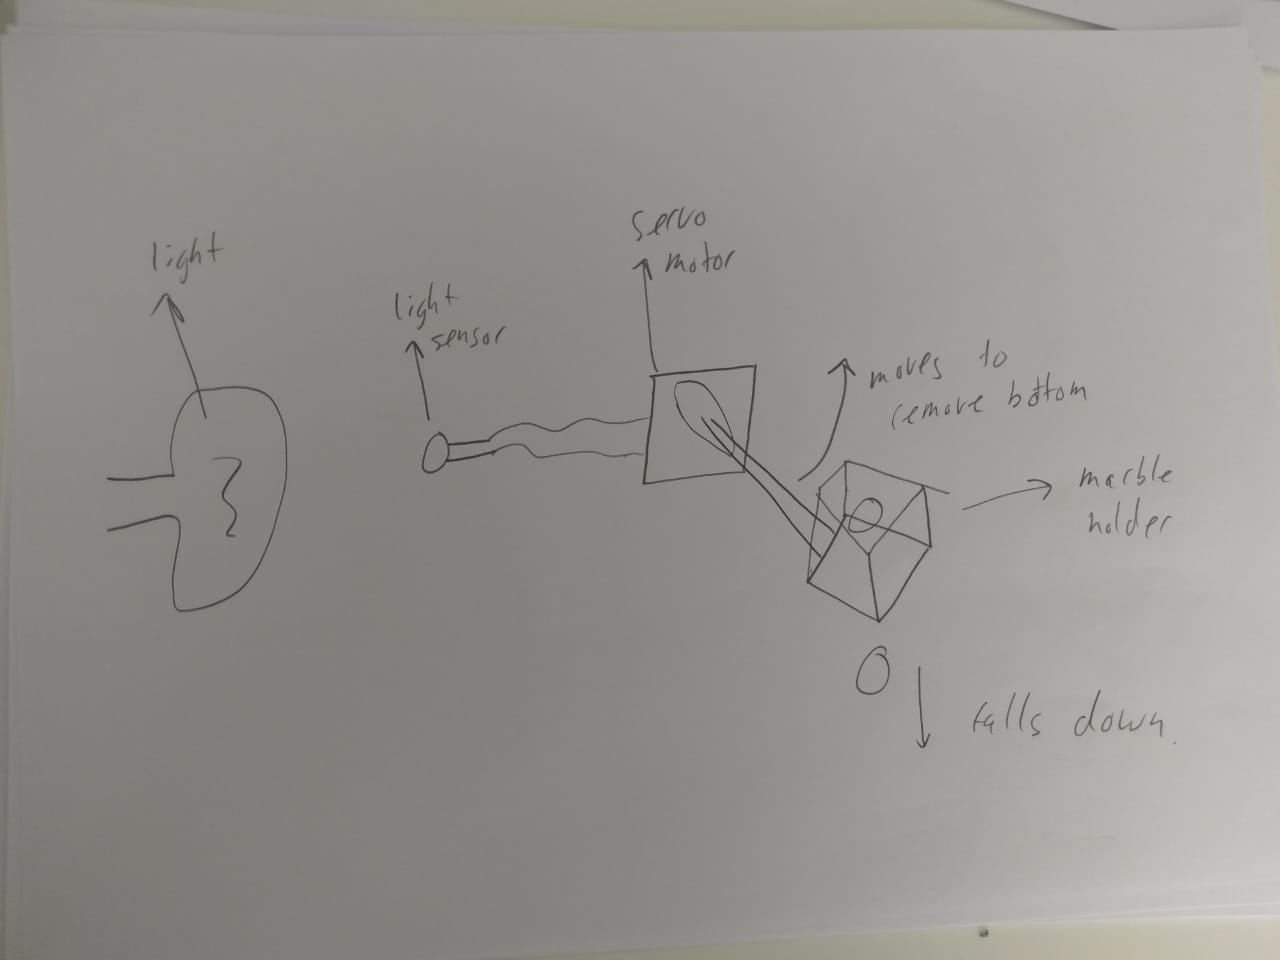 light
light
sensor
servo
motor
moves to
remove bottom
marble
holder
falls down.